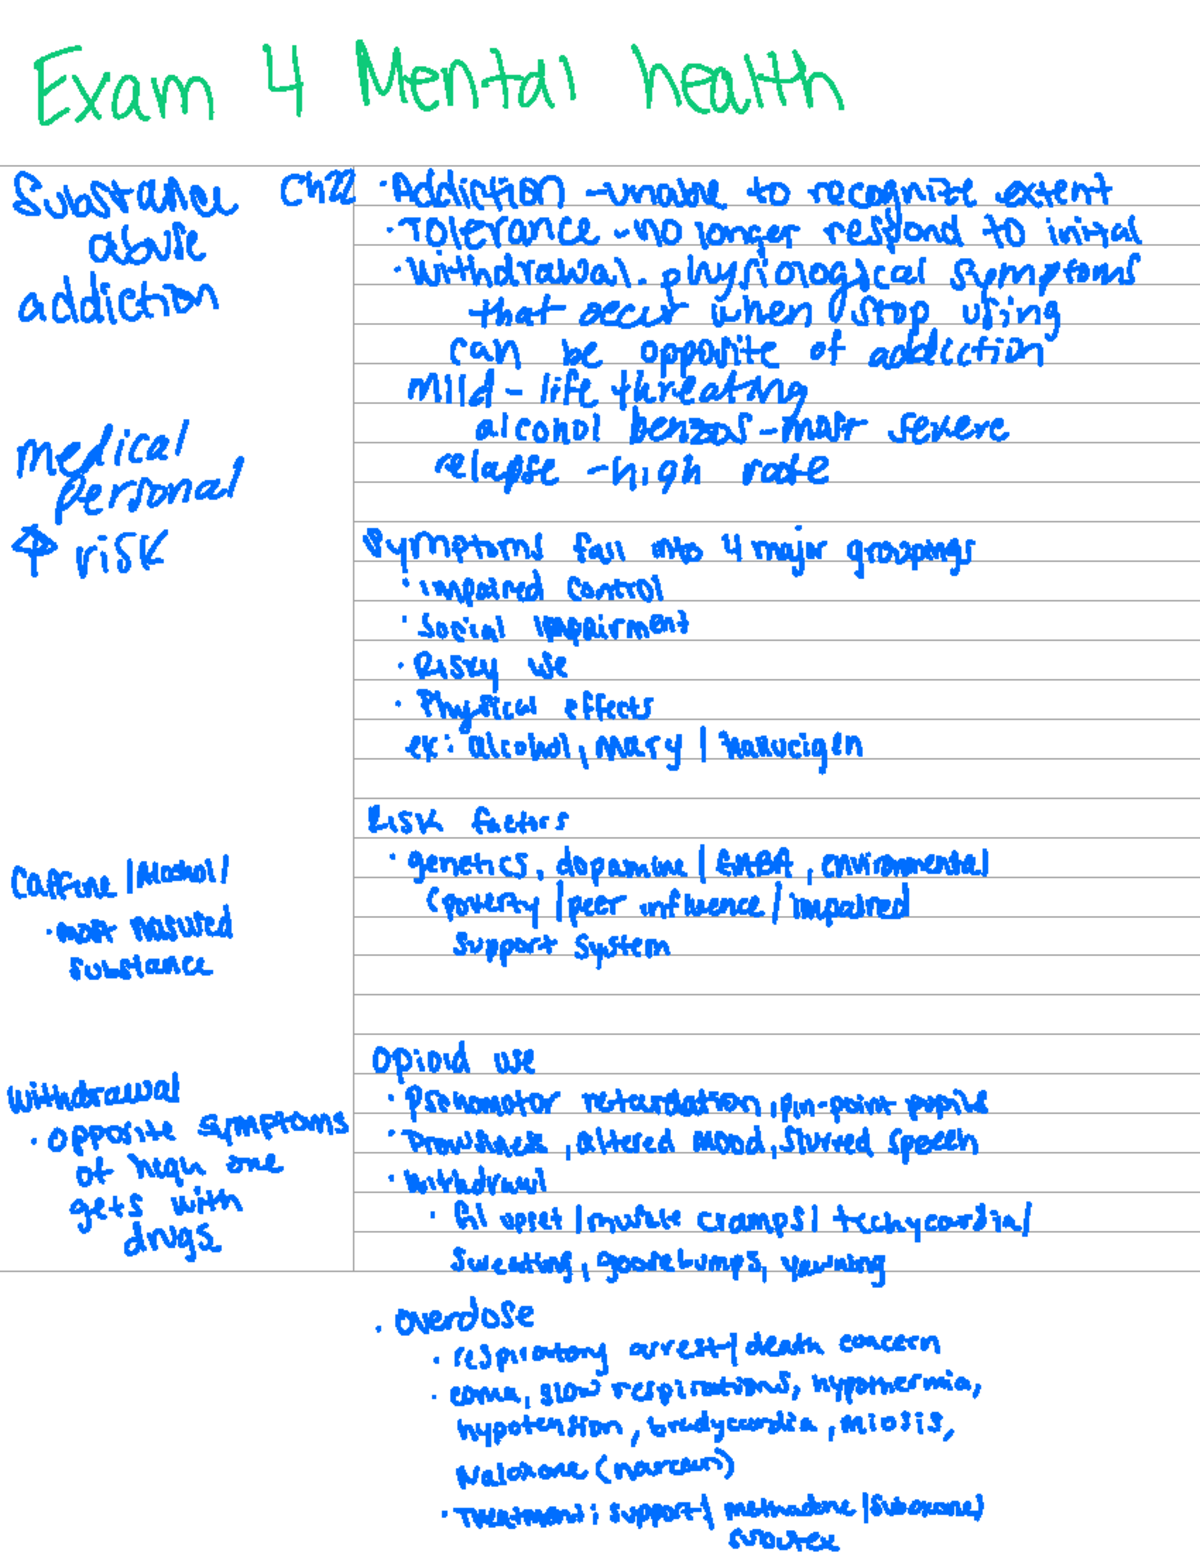 Exam 4 Mental health
Substance Ch22
abuse
addiction
medical
personal
risk
Caffine / Alcohol /
· most misused
substance
Withdrawal
· opposite symptoms
of hequ one
gets with
drugs
· Addiction - unable to recognize extent
· Tolerance - no longer respond to initial
· Withdrawal. physiological symptoms
that occur when stop using
can be opposite of addiction
mild - life threating
alcohol benzos - most severe
relapse - high rate
Symptoms fall into 4 major groupings
· impaired control
· Social impairment
· Risky use
· Physical effects
ex: alcohol, mary / halucigen
Risk factors
· genetics, dopamine / GABA, environmental
(poverty / peer influence / impaired
support system
Opioid use
· Psychomotor retardation, pin-point pupils
· Drowsiness, altered mood, slurred speech
· Withdrawl
· GI upset / muscle cramps / techycardia /
sweating, goosebumps, yawning
· overdose
· respiratory arrest / death concern
· coma, slow respirations, hypothermia,
hypotension, bradycardia, miosis,
Naloxone (narcan)
· Treatment: support / methadone / Suboxone /
subutex